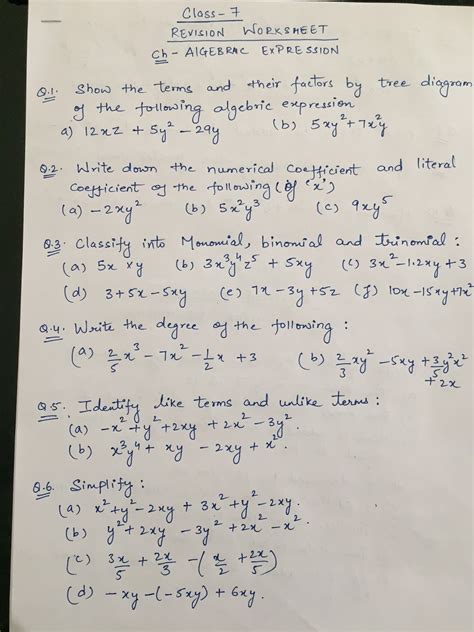 Class-7
REVISION WORKSHEET
Ch - AlGEBRAC EXPRESSION
Q.1. Show the terms and their factors by tree diagram
of the following algebric expression
a) 12xz + 5y² - 29y (b) 5xy² + 7x²y
Q.2. Write down the numerical coefficient and literal
coefficient of the following (of 'x')
(a) -2xy² (b) 5x²y³ (c) 9xy⁵
Q.3. Classify into Monomial, binomial and trinomial :
(a) 5x × y (b) 3x³y⁴z⁵ + 5xy (c) 3x² - 1.2xy + 3
(d) 3 + 5x - 5xy (e) 7x - 3y + 5z (f) 10x - 15xy + 7x²
Q.4. Write the degree of the following :
(a) 2/5 x³ - 7x² - 1/2 x + 3 (b) 2/3 xy² - 5xy + 3/5 y²x²
+ 2x
Q.5. Identify like terms and unlike terms :
(a) -x² + y² + 2xy + 2x² - 3y².
(b) x³y⁴ + xy - 2xy + x².
Q.6. Simplify :
(a) x² + y² - 2xy + 3x² + y² - 2xy.
(b) y² + 2xy - 3y² + 2x² - x².
(c) 3x/5 + 2x/3 - (x/2 + 2x/5)
(d) -xy - (-5xy) + 6xy.